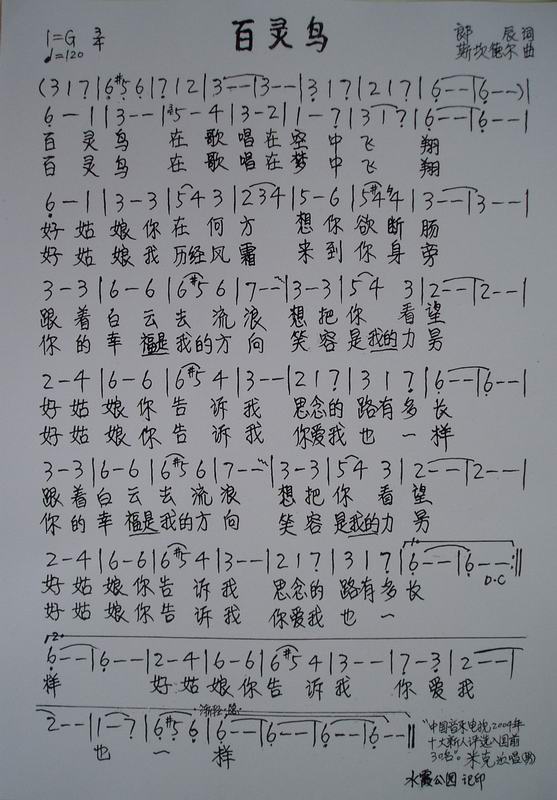 百灵鸟
1=G 3/4
♩=120
郎 辰 词
斯坎德尔 曲
(3 1 7̣ | 6̣ #5̣ 6̣ | 7̣ 1 2 | 3 - - | 3 - - | 3 1 7̣ | 2 1 7̣ | 6̣ - - | 6̣ - -) |
6̣ - 1 | 3 - - | 5 - 4 | 3 - 2 | 1 - 7̣ | 3 1 7̣ | 6̣ - - | 6̣ - - |
百 灵 鸟 在 歌 唱 在 空 中 飞 翔
百 灵 鸟 在 歌 唱 在 梦 中 飞 翔
6̣ - 1 | 3 - 3 | 5 4 3 | 2 3 4 | 5 - 6 | 5 #4 4 | 3 - - | 3 - - |
好 姑 娘 你 在 何 方 想 你 欲 断 肠
好 姑 娘 我 历经 风 霜 来 到 你 身 旁
3 - 3 | 6 - 6 | 6 #5 6 | 7 - - | 3 - 3 | 5 4 3 | 2 - - | 2 - - |
跟 着 白 云 去 流 浪 想 把 你 看 望
你 的 幸 福是 我 的 方 向 笑 容 是 我的 力 男
2 - 4 | 6 - 6 | 6 #5 4 | 3 - - | 2 1 7̣ | 3 1 7̣ | 6̣ - - | 6̣ - - |
好 姑 娘 你 告 诉 我 思 念 的 路 有 多 长
好 姑 娘 你 告 诉 我 你 爱 我 也 一 样
3 - 3 | 6 - 6 | 6 #5 6 | 7 - - | 3 - 3 | 5 4 3 | 2 - - | 2 - - |
跟 着 白 云 去 流 浪 想 把 你 看 望
你 的 幸 福是 我 的 方 向 笑 容 是 我的 力 男
2 - 4 | 6 - 6 | 6 #5 4 | 3 - - | 2 1 7̣ | 3 1 7̣ | 1. 6̣ - - | 6̣ - - :||
D.C
好 姑 娘 你 告 诉 我 思 念 的 路 有 多 长
好 姑 娘 你 告 诉 我 你 爱 我 也 一
2.
6̣ - - | 6̣ - - | 2 - 4 | 6 - 6 | 6 #5 4 | 3 - - | 7 - 3 | 2 - - |
样 好 姑 娘 你 告 诉 我 你 爱 我
渐轻、慢
2 - - | 1 - 7̣ | 6̣ #5̣ 6̣ | 6̣ - - | 6̣ - - | 6̣ - - | 6̣ - - ||
也 一 样
"中国音乐电视2004年
十大新人评选入围前
30名"。米克 演唱(男)
水霞公园 记印